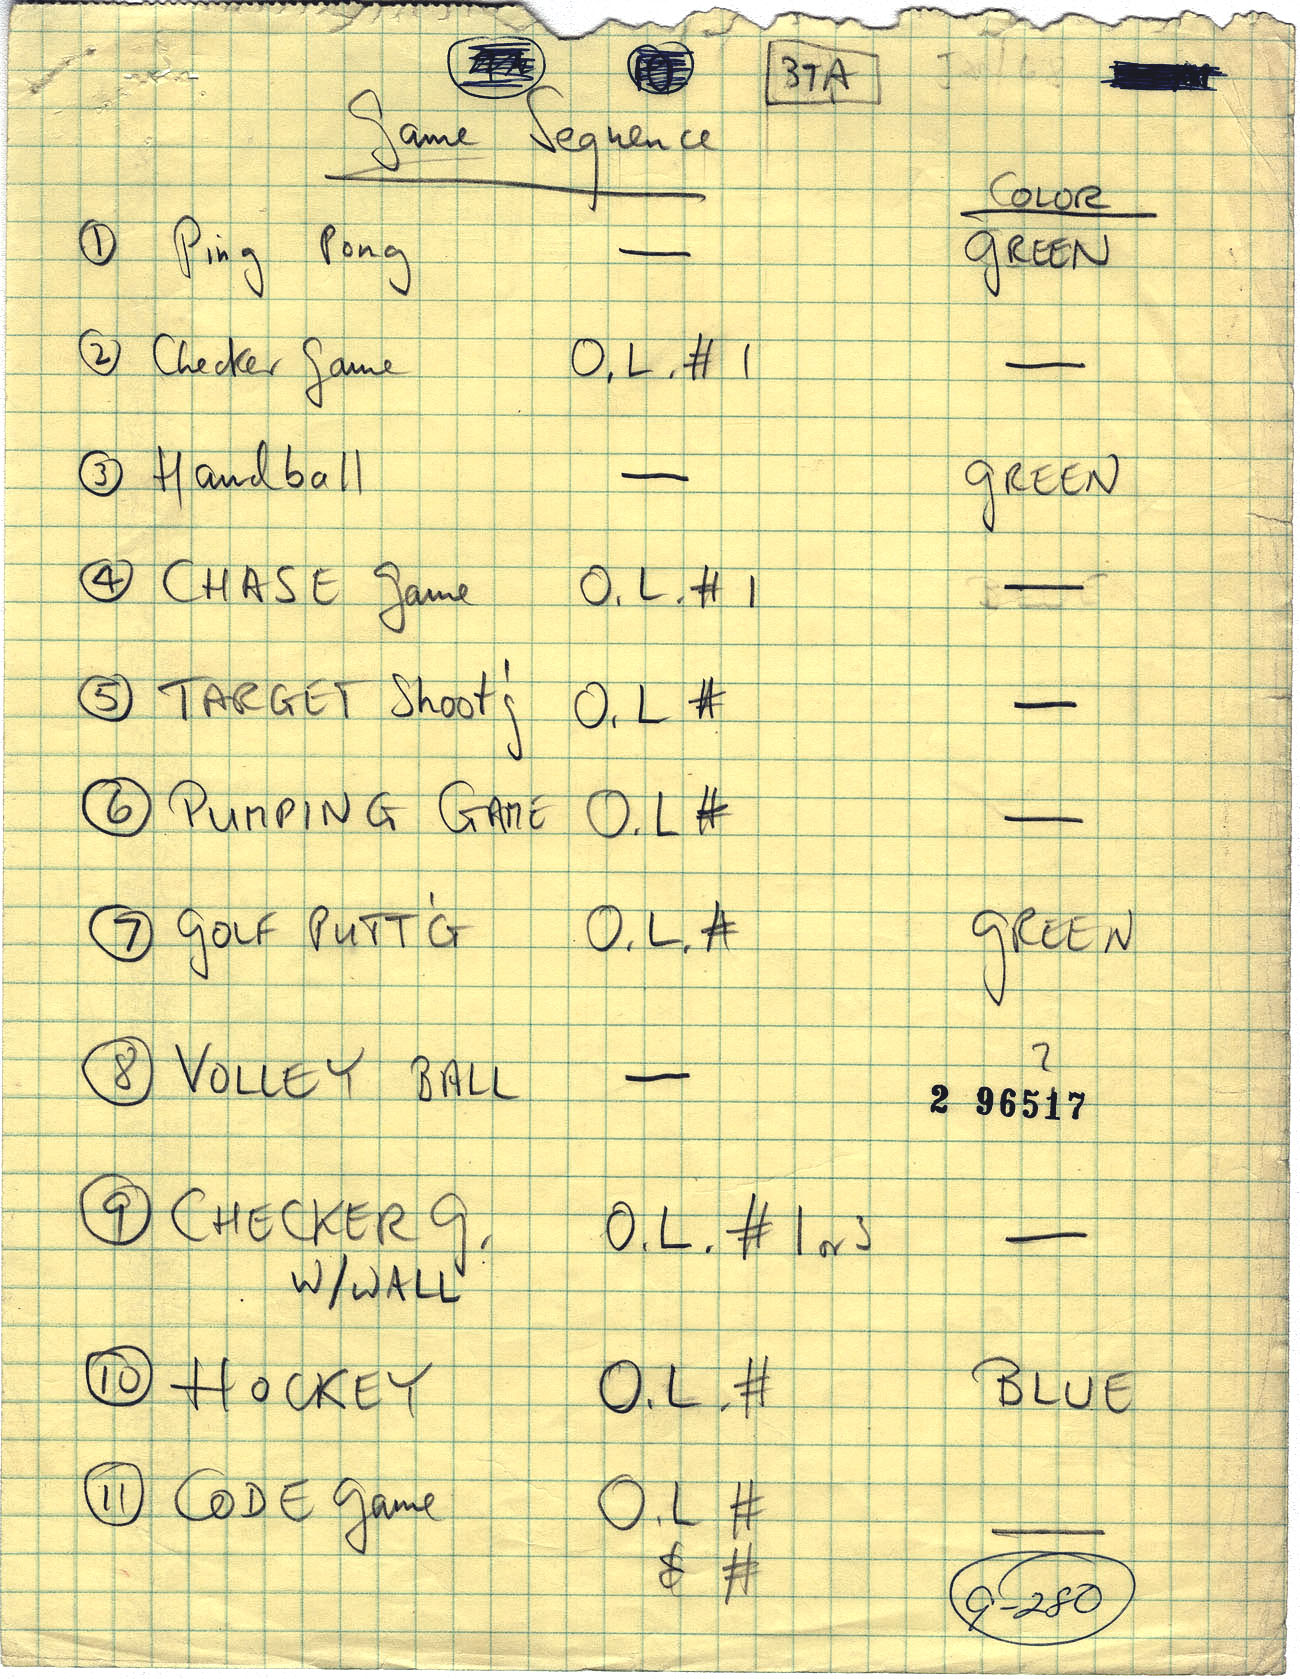 37A
Game Sequence
COLOR
① Ping Pong — GREEN
② Checker Game O.L.#1 —
③ Handball — GREEN
④ CHASE Game O.L.#1 —
⑤ TARGET Shoot'g O.L # —
⑥ PUMPING GAME O.L # —
⑦ GOLF PUTT'G O.L.# GREEN
⑧ VOLLEY BALL — ?
2 96517
⑨ CHECKER G. O.L.#1 or 3 —
W/WALL
⑩ HOCKEY O.L.# BLUE
⑪ CODE Game O.L # —
& #
9-280